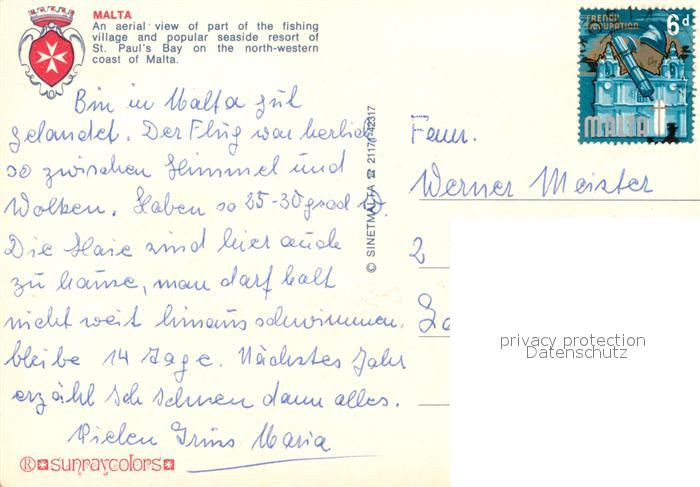 MALTA
An aerial view of part of the fishing
village and popular seaside resort of
St. Paul's Bay on the north-western
coast of Malta.
FRENCH OCCUPATION
6d
MALTA
Bin in Malta gut
gelandet. Der Flug war herlich
so zwischen Himmel und
Wolken. Haben so 25-30 grad W.
Die Haie sind hier auch
zu hause, man darf halt
nicht weit hinaus schwimmen.
bleibe 14 Tage. Nächstes Jahr
erzähl ich ihnen dann alles.
Vielen Gruss Maria
® sunraycolors
© SINETMALTA ☎ 21171-42317
Fam.
Werner Meister
2
privacy protection
Datenschutz